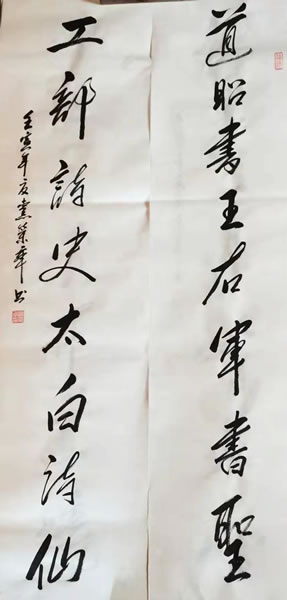 道昭書王右軍書聖
工部詩史太白詩仙
壬寅年